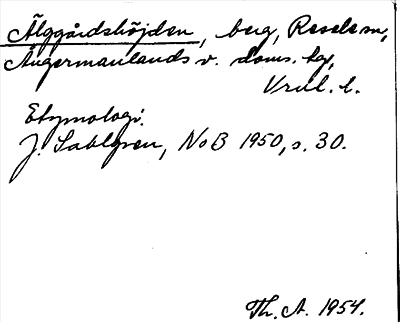 Älggårdshöjden, berg, Resele sn,
Ångermanlands v. doms. tg,
Vrnl. l.
Etymologi.
J. Sahlgren, NoB 1950, s. 30.
Th. A. 1954.